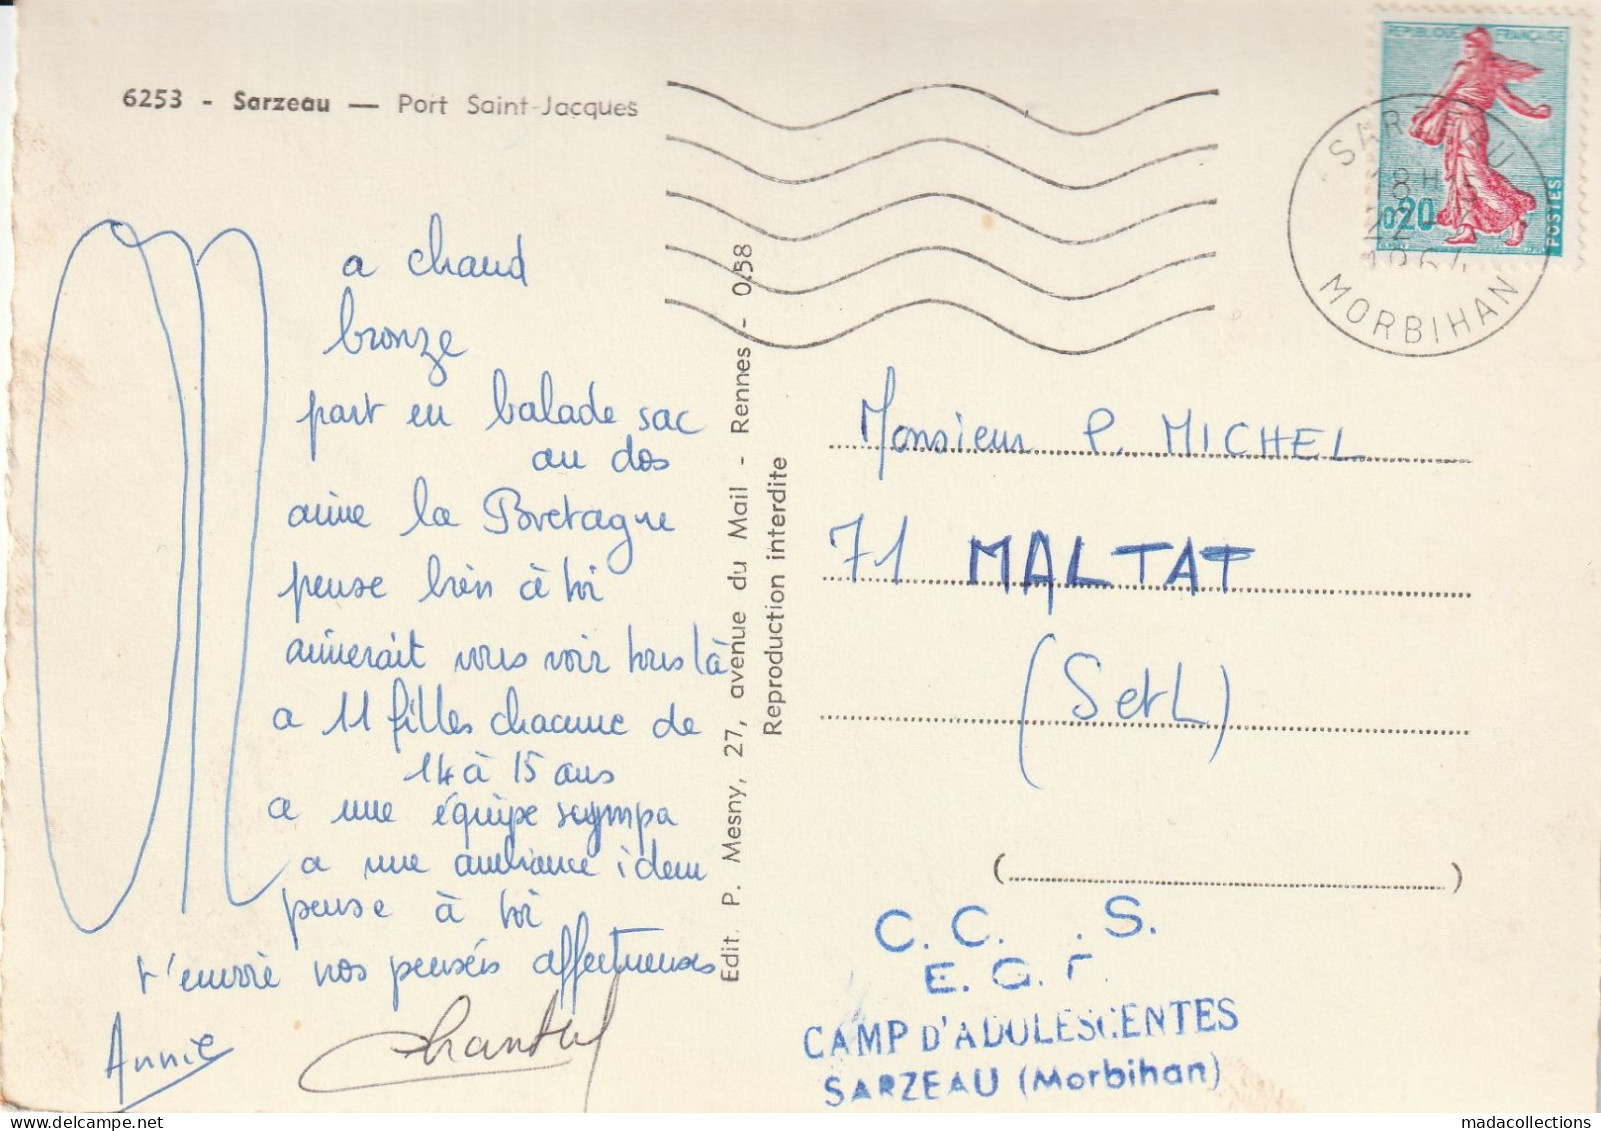 6253 - Sarzeau — Port Saint-Jacques
On
a chaud
bronze
part en balade sac
au dos
aime la Bretagne
pense bien à toi
aimerait vous voir tous là
a 11 filles chacune de
14 à 15 ans
a une équipe sympa
a une ambiance idem
pense à toi
t'envoie nos pensées affectueuses
Annie
Chantal
Edit. P. Mesny, 27, avenue du Mail - Rennes - 0.58
Reproduction interdite
REPUBLIQUE FRANÇAISE
0,20
POSTES
SARZEAU
18H
22
1964
MORBIHAN
Monsieur P. MICHEL
71 MALTAT
(S et L)
C. C. . S.
E. G. F.
CAMP D'ADOLESCENTES
SARZEAU (Morbihan)
madacollections